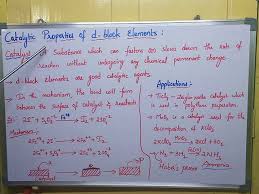 Catalytic Properties of d-block Elements:
Catalyst → Substance which can fastens or slows down the rate of
reaction without undergoing any chemical permanent change.
→ d-block Elements are good catalytic agents.
→ In the mechanism, the bond will form
between the surface of catalyst & reactants
Mechanism:
Applications:
→ TiCl4 - Zeigler-natta catalyst which
is used in polythene preparation
→ MnO2 is a catalyst used for the
decomposition of KClO3
2KClO3
→ N2 + 3H2 2NH3
Haber's process Ammonia